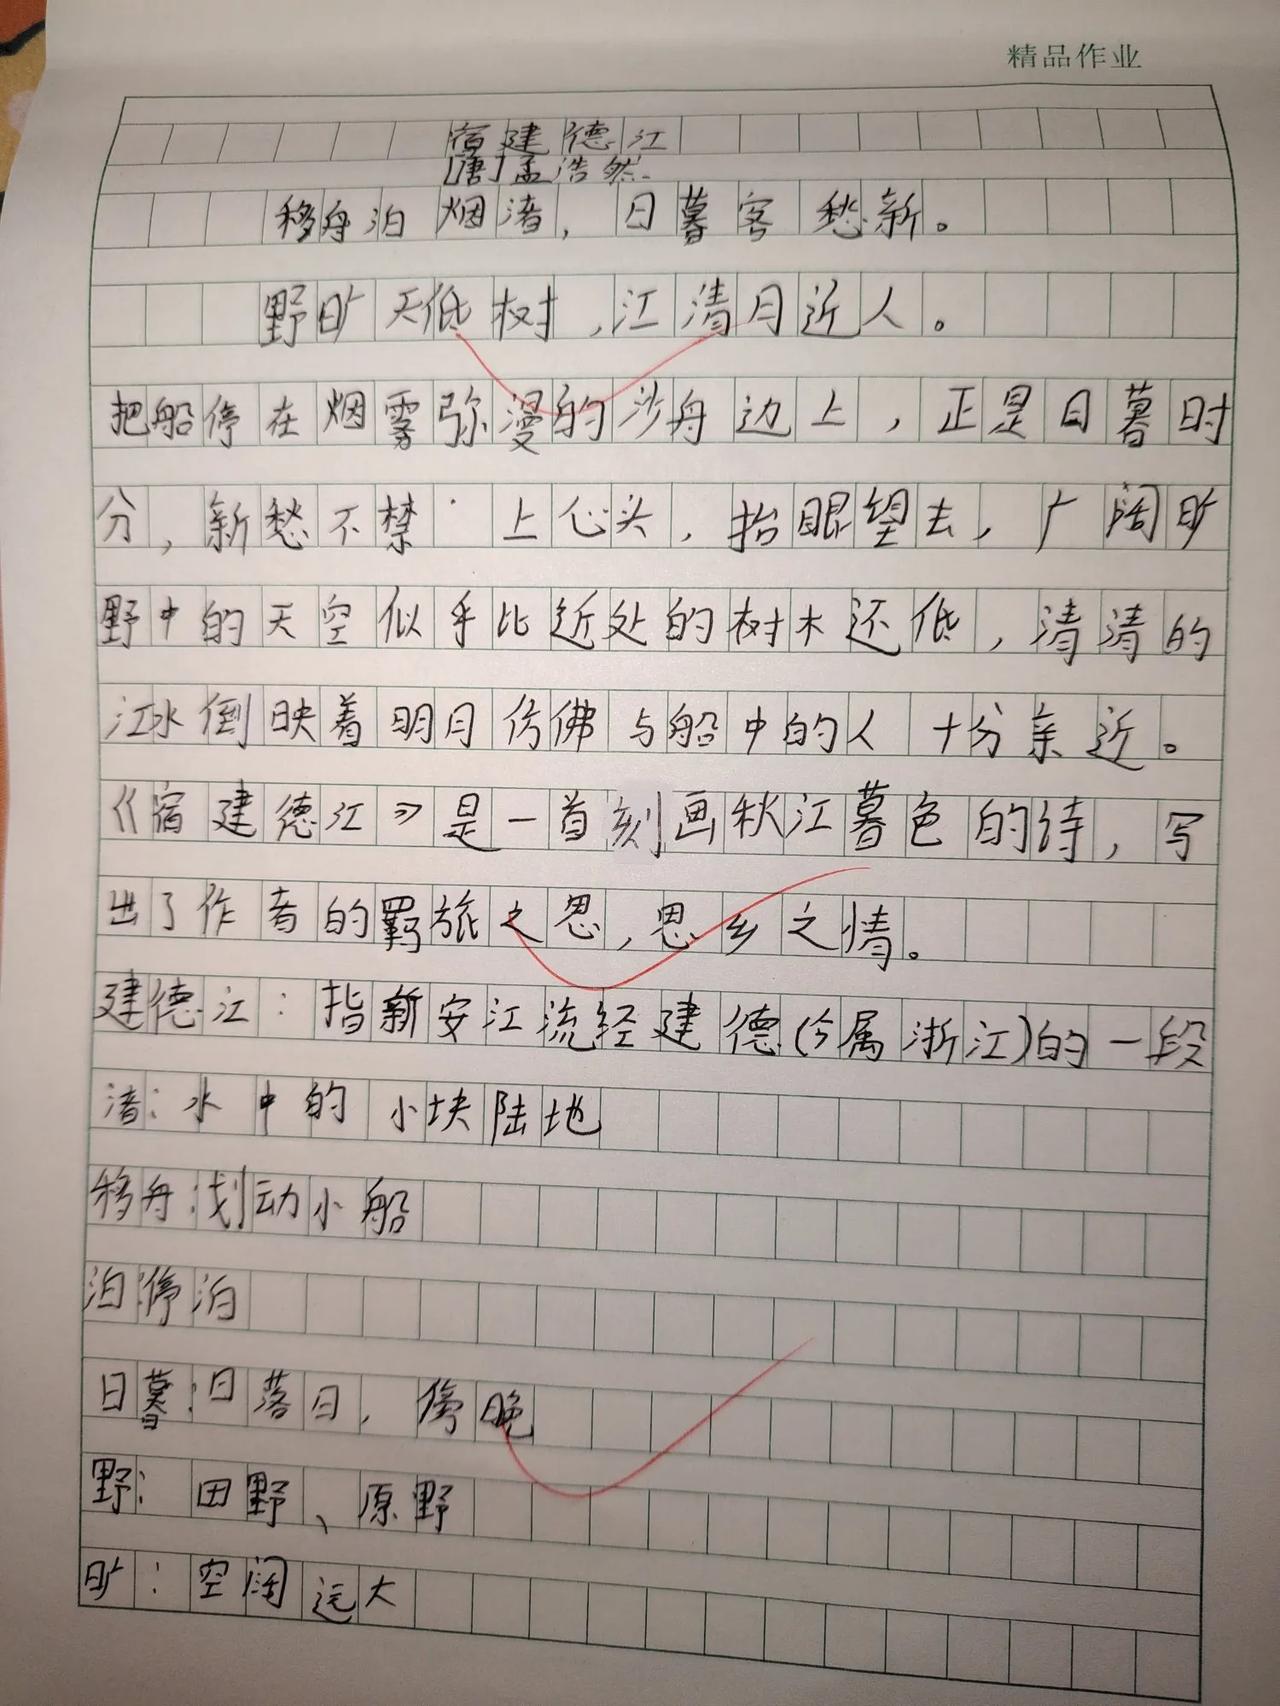 精品作业
宿建德江
[唐]孟浩然.
移舟泊烟渚，日暮客愁新。
野旷天低树，江清月近人。
把船停在烟雾弥漫的沙舟边上，正是日暮时
分，新愁不禁 上心头，抬眼望去，广阔旷
野中的天空似乎比近处的树木还低，清清的
江水倒映着明月仿佛与船中的人十分亲近。
《宿建德江》是一首刻画秋江暮色的诗，写
出了作者的羁旅之思，思乡之情。
建德江：指新安江流经建德(今属浙江)的一段
渚：水中的小块陆地
移舟：划动小船
泊：停泊
日暮：日落日，傍晚
野：田野、原野
旷：空阔远大